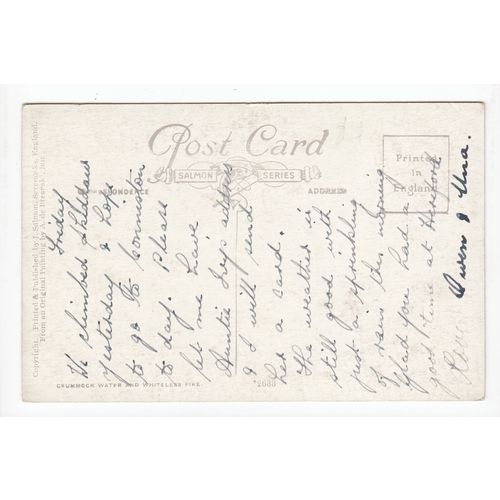 Copyright. Printed & Published by J. Salmon, Sevenoaks, England.
From an Original Painting by A. de Breanski, Jun.
Post Card
SALMON SERIES
CORRESPONDENCE
ADDRESS
Printed
in
England
CRUMMOCK WATER AND WHITELESS PIKE.
*2683
Friday
We climbed
yesterday & hope
to go to Conniston
to day. Please
let me have
Auntie Ivys address
& I will send
her a card.
The weather is
still good with
just a sprinkling
of rain this morning
Glad you had a
good time at Hereford
Owen & Una.